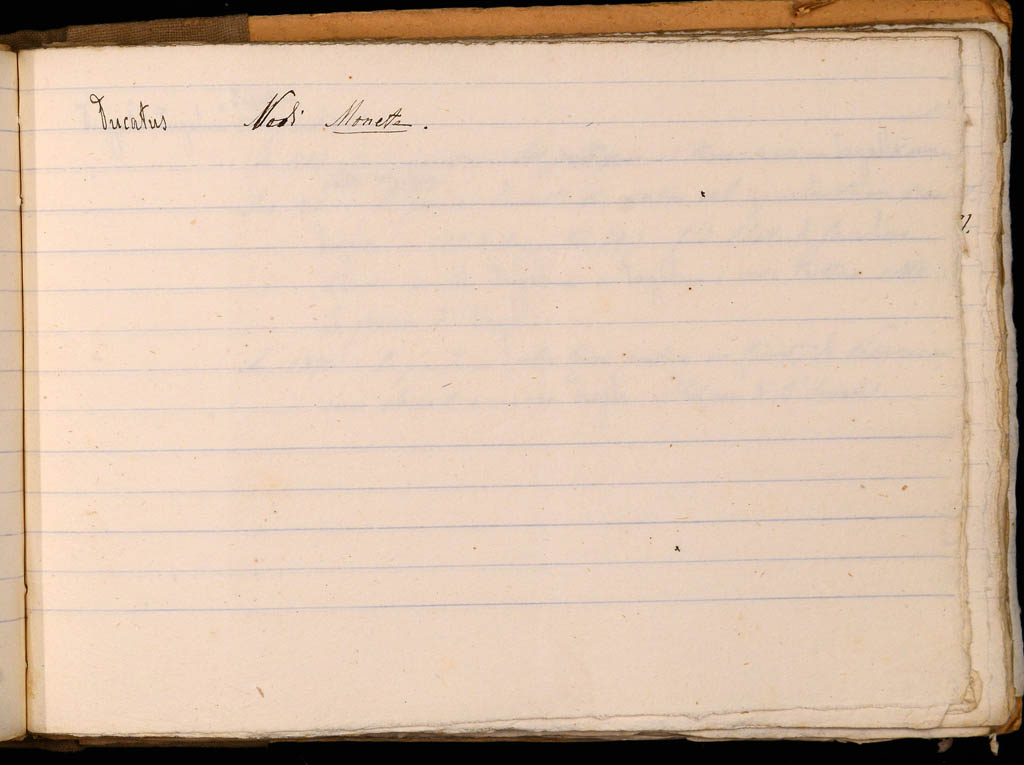 Ducatus Vedi Moneta.